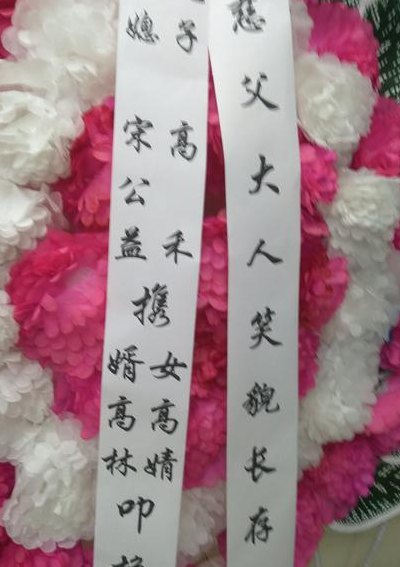 慈父大人笑貌长存
子高禾
媳宋公益
携
女高婧
婿高林
叩